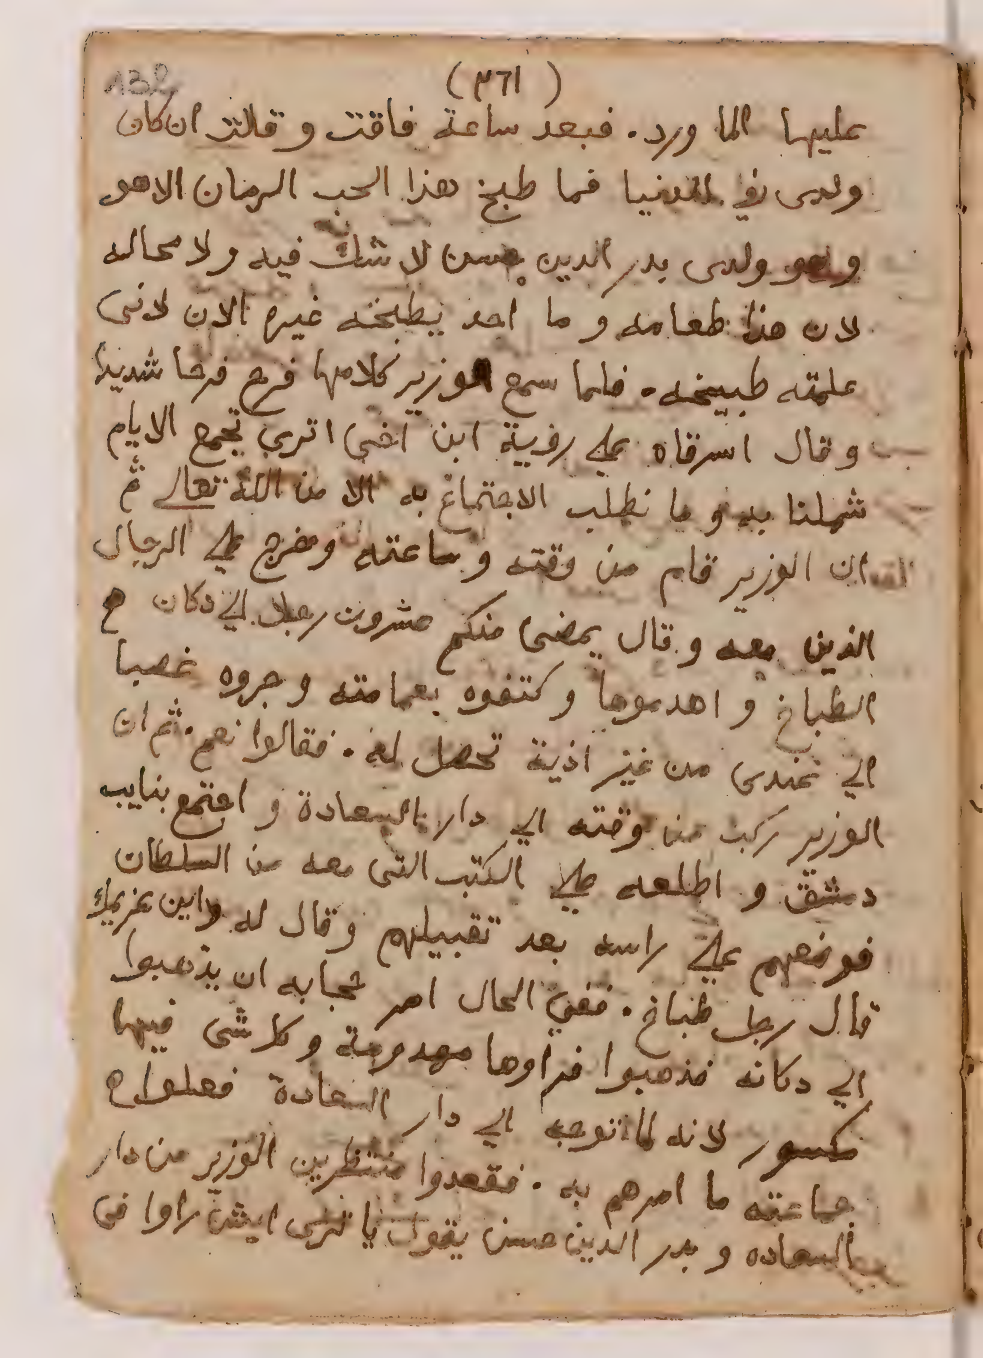 132
(٣٦١)
عليها الما ورد. فبعد ساعة فاقت وقالت ان كان
ولدى في الدنيا فما طبخ هذا الحب الرمان الا هو
وهو ولدى بدر الدين حسن لا شك فيه ولا محاله
لان هذا طعامه وما احد يطبخه غيره الان لانى
علمته طبيخه. فلما سمع الوزير كلامها فرح فرحا شديدا
وقال اسرقاه على روية ابن اخى اترى تجمع الايام
شملنا به وما نطلب الاجتماع به الا من الله تعالى ثم
ان الوزير قام من وقته وساعته وخرج على الرجال
الذين معه وقال يمضى منكم عشرون رجلا الي دكان
الطباخ واهدموها وكتفوه بعمامته وجروه غصبا
الي عندى من غير اذية تحصل له. فقالوا نعم. ثم ان
الوزير ركب من وقته الي دار السعادة واجتمع بنايب
دمشق واطلعه على الكتب التى معه من السلطان
فوضعهم على راسه بعد تقبيلهم وقال له واين غريمك
قال رجل طباخ. ففي الحال امر حجابه ان يذهبوا
الي دكانه فذهبوا فراوها مهدومة وكل شى فيها
مكسور لانه لما توجه الي دار السعادة فعلوا
جماعته ما امرهم به. فقعدوا منتظرين الوزير من دار
السعاده وبدر الدين حسن يقول يا ترى ايش راوا في